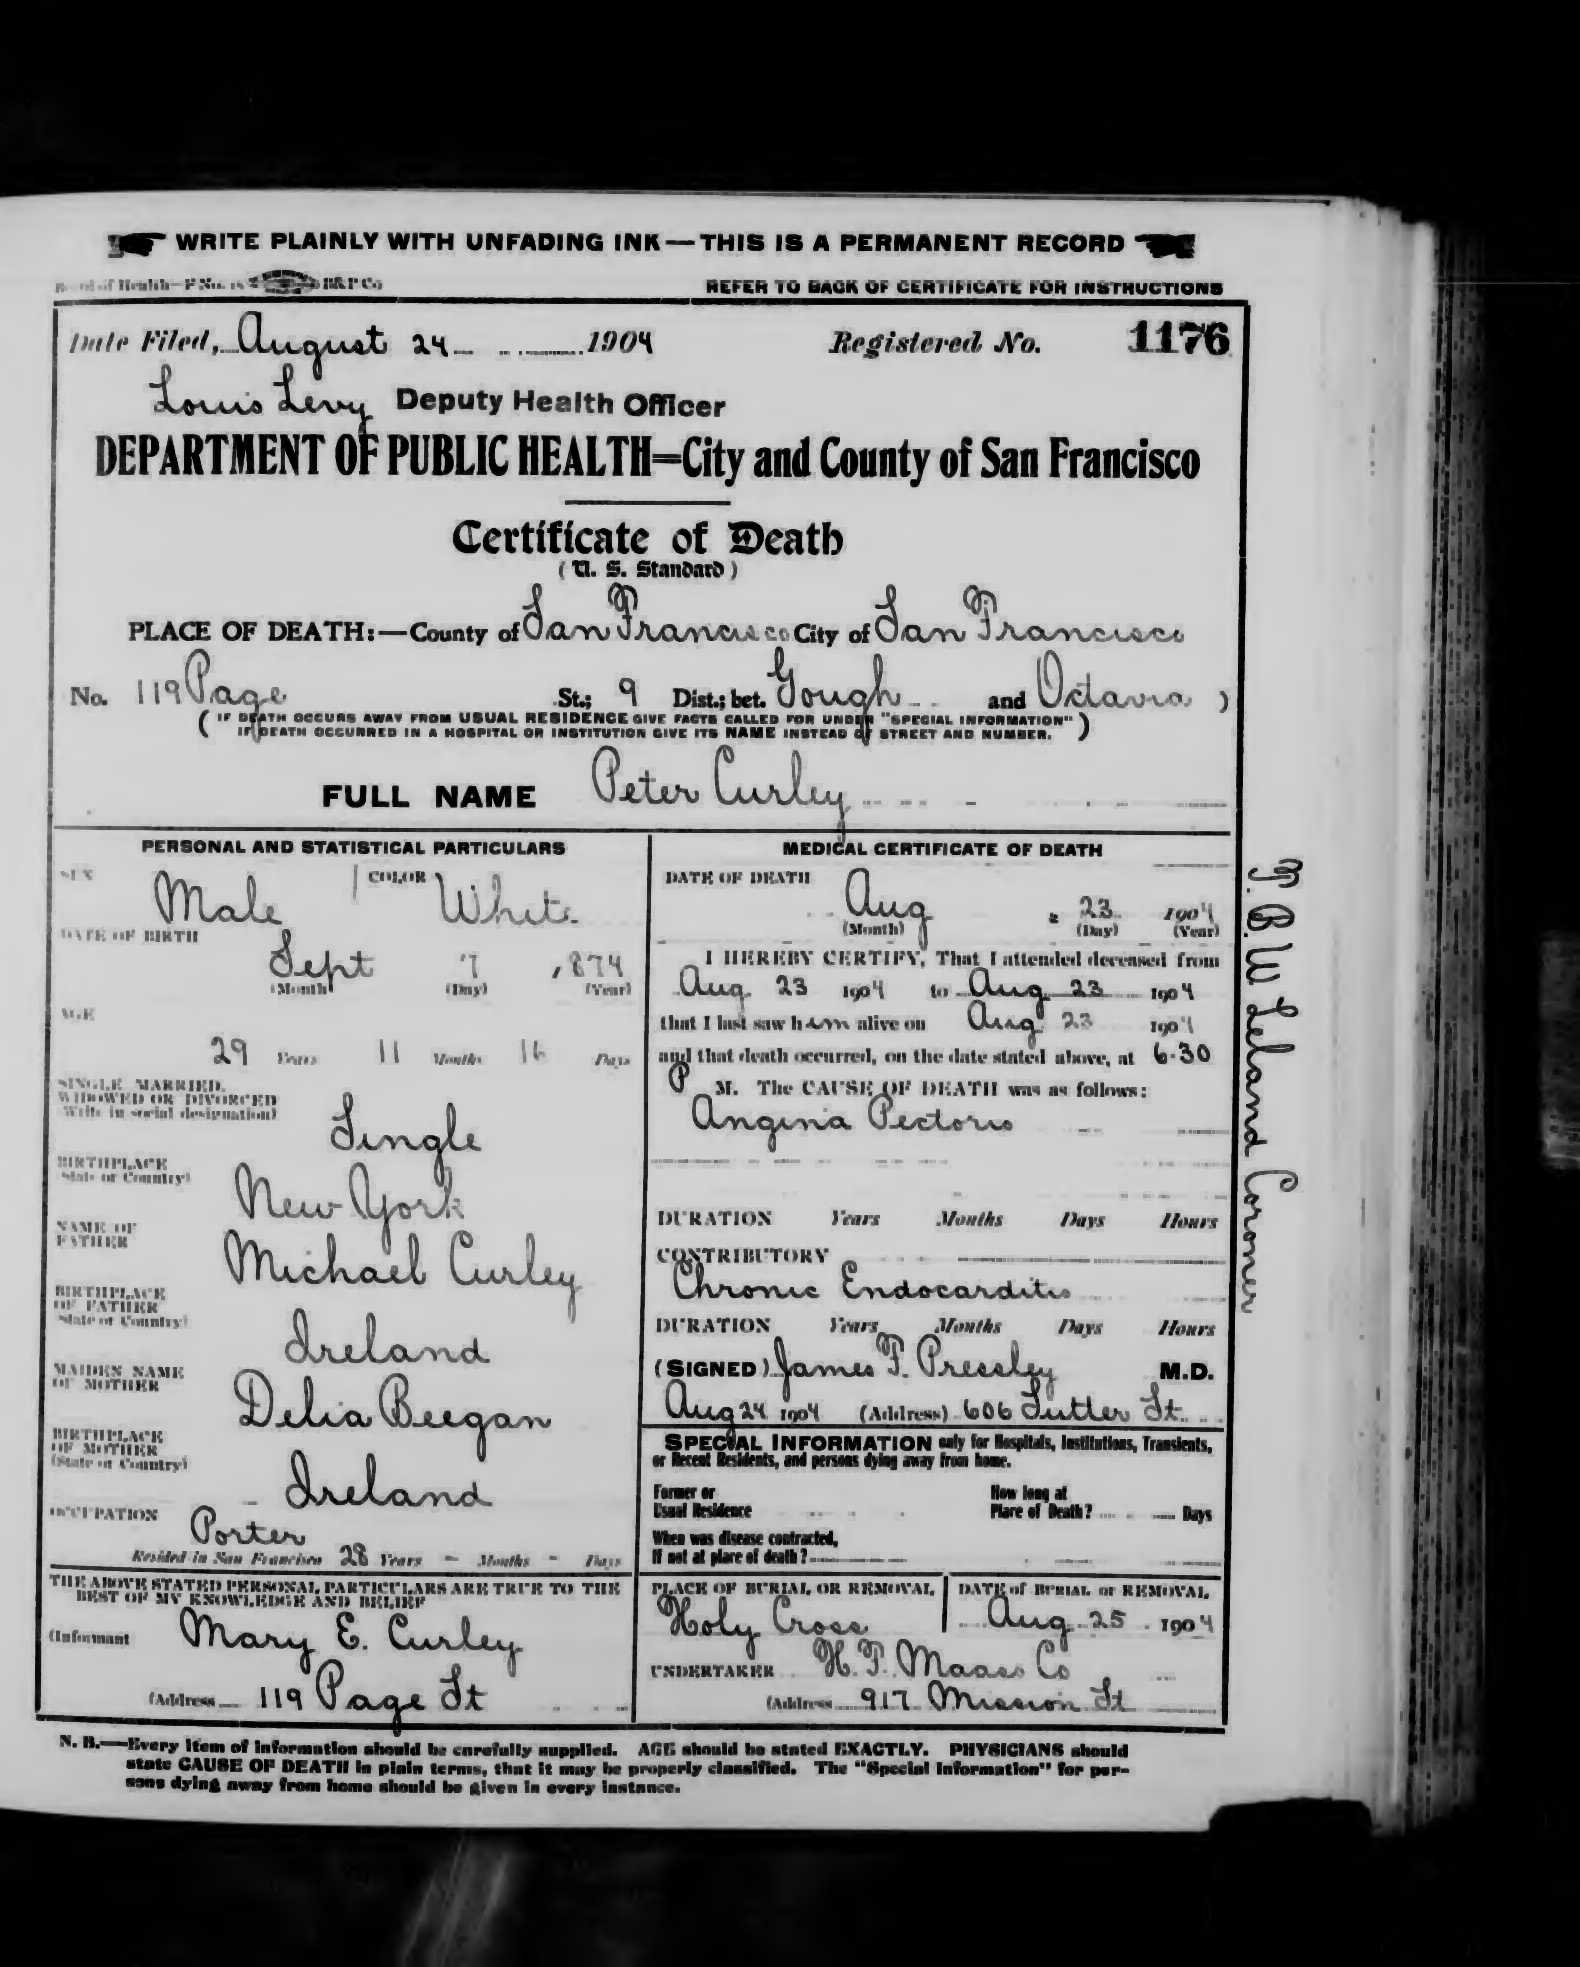 WRITE PLAINLY WITH UNFADING INK—THIS IS A PERMANENT RECORD
Board of Health—F No. 18 B&P Co
REFER TO BACK OF CERTIFICATE FOR INSTRUCTIONS
Date Filed, August 24 1904 Registered No. 1176
Louis Levy Deputy Health Officer
DEPARTMENT OF PUBLIC HEALTH=City and County of San Francisco
Certificate of Death
(U. S. Standard)
PLACE OF DEATH:—County of San Francisco City of San Francisco
No. 119 Page St.; 9 Dist.; bet. Gough and Octavia )
( IF DEATH OCCURS AWAY FROM USUAL RESIDENCE GIVE FACTS CALLED FOR UNDER "SPECIAL INFORMATION" )
IF DEATH OCCURRED IN A HOSPITAL OR INSTITUTION GIVE ITS NAME INSTEAD OF STREET AND NUMBER.
FULL NAME Peter Curley
PERSONAL AND STATISTICAL PARTICULARS
SEX Male COLOR White
DATE OF BIRTH
Sept 7 1874
(Month) (Day) (Year)
AGE
29 Years 11 Months 16 Days
SINGLE MARRIED,
WIDOWED OR DIVORCED
(Write in social designation)
Single
BIRTHPLACE
State or Country)
New York
NAME OF
FATHER
Michael Curley
BIRTHPLACE
OF FATHER
State or Country)
Ireland
MAIDEN NAME
OF MOTHER
Delia Beegan
BIRTHPLACE
OF MOTHER
(State or Country)
Ireland
OCCUPATION
Porter
Resided in San Francisco 28 Years - Months - Days
THE ABOVE STATED PERSONAL PARTICULARS ARE TRUE TO THE
BEST OF MY KNOWLEDGE AND BELIEF
(Informant Mary E. Curley
(Address 119 Page St
MEDICAL CERTIFICATE OF DEATH
DATE OF DEATH
Aug 23 1904
(Month) (Day) (Year)
I HEREBY CERTIFY, That I attended deceased from
Aug 23 1904 to Aug 23 1904
that I last saw him alive on Aug 23 1904
and that death occurred, on the date stated above, at 6-30
P M. The CAUSE OF DEATH was as follows:
Angina Pectoris
DURATION Years Months Days Hours
CONTRIBUTORY
Chronic Endocarditis
DURATION Years Months Days Hours
(SIGNED) James T. Pressley M.D.
Aug 24 1904 (Address) 606 Sutter St.
SPECIAL INFORMATION only for Hospitals, Institutions, Transients,
or Recent Residents, and persons dying away from home.
Former or
Usual Residence
How long at
Place of Death? Days
When was disease contracted,
If not at place of death?
PLACE OF BURIAL OR REMOVAL
Holy Cross
DATE of BURIAL or REMOVAL
Aug 25 1904
UNDERTAKER H. F. Maass Co
(Address 917 Mission St
N. B.—Every item of information should be carefully supplied. AGE should be stated EXACTLY. PHYSICIANS should
state CAUSE OF DEATH in plain terms, that it may be properly classified. The "Special Information" for per-
sons dying away from home should be given in every instance.
T. B. W Leland Coroner